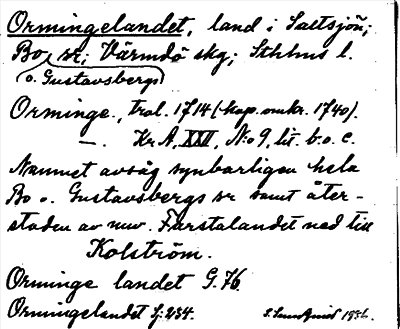 Ormingelandet, land i Saltsjö-
Bo sr; Värmdö skg; Sthlms l.
(o. Gustavsbergs)
Orminge, trol. 1714 (kop. omkr. 1740).
—. Kr A, XXII, N:o 9, lit. b. o. c.
Namnet avsåg synbarligen hela
Bo o. Gustavsbergs sr samt åter-
staden av nuv. Farstalandet ned till
Kolström.
Orminge landet G. 76
Ormingelandet Sj: 234.
S. Lundqvist 1932.